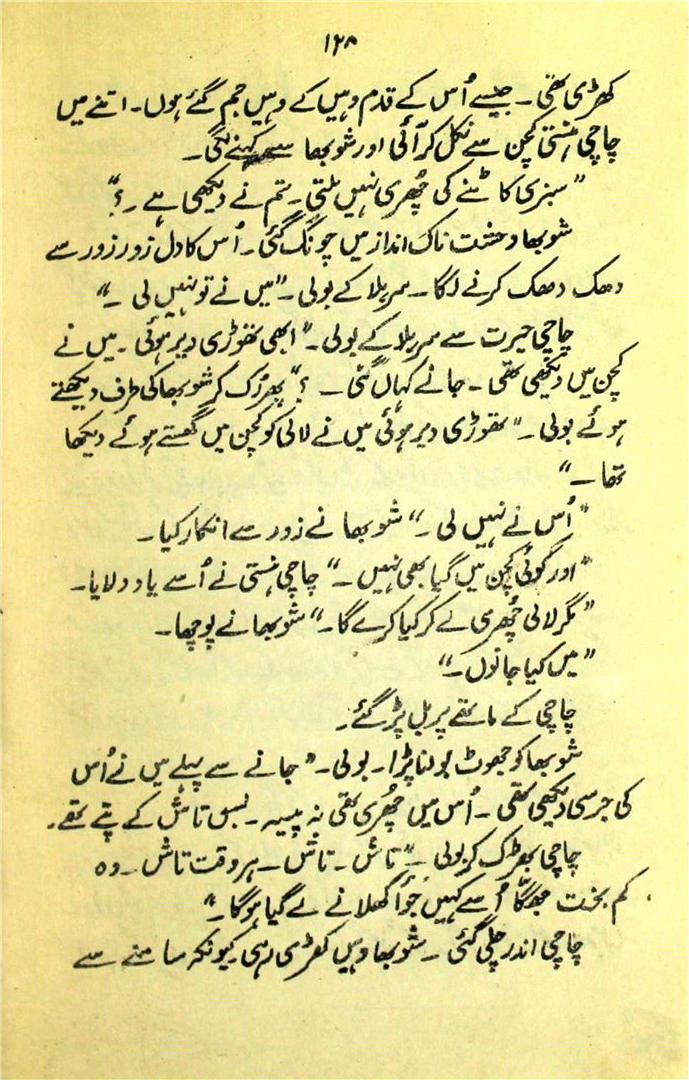 ۱۲۸
کھڑی تھی ۔ جیسے اُس کے قدم وہیں کے وہیں جم گئے ہوں ۔ اتنے میں
چاچی ہنستی کچن سے نکل کر آئی اور شوبھا سے کہنے لگی ۔
" سبزی کاٹنے کی چُھری نہیں ملتی ۔ تم نے دیکھی ہے ۔ ؟ "
شوبھا وحشت ناک انداز میں چونک گئی ۔ اُس کا دل زور زور سے
دھک دھک کرنے لگا ۔ سر ہلا کے بولی ۔ " میں نے تو نہیں لی ۔ "
چاچی حیرت سے سر ہلا کے بولی ۔ " ابھی تھوڑی دیر ہوئی ۔ میں نے
کچن میں دیکھی تھی ۔ جانے کہاں گئی ۔ ؟ " پھر رُک کر شوبھا کی طرف دیکھتے
ہوئے بولی ۔ " تھوڑی دیر ہوئی میں نے لالی کو کچن میں گھستے ہوئے دیکھا
تھا ۔ "
" اُس نے نہیں لی ۔ " شوبھا نے زور سے انکار کیا ۔
" اور کوئی کچن میں گیا بھی نہیں ۔ " چاچی ہنستی نے اُسے یاد دلایا ۔
" مگر لالی چُھری لے کر کیا کرے گا ۔ " شوبھا نے پوچھا ۔
" میں کیا جانوں ۔ "
چاچی کے ماتھے پر بل پڑ گئے ۔
شوبھا کو جھوٹ بولنا پڑا ۔ بولی ۔ " جانے سے پہلے میں نے اُس
کی جرسی دیکھی تھی ۔ اُس میں چُھری تھی نہ پیسہ ۔ بس تاش کے پتے تھے ۔
چاچی بھڑک کر بولی ۔ " تاش ۔ تاش ۔ ہر وقت تاش ۔ وہ
کم بخت جھگّا اُسے کہیں جُوا کھلانے لے گیا ہوگا ۔ "
چاچی اندر چلی گئی ۔ شوبھا وہیں کھڑی رہی کیونکہ سامنے سے